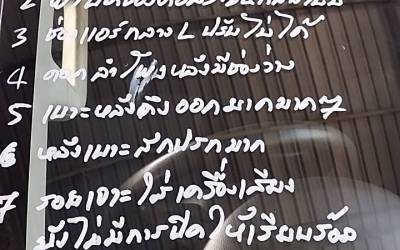 3 ช่องแอร์กลาง L ปรับไม่ได้
4 ดอกลำโพงหลังมีช่องว่าง
5 เบาะหลังดึงออกยากมากๆ
6 หลังเบาะสกปรกมาก
7 รอยเจาะใส่เครื่องเสียง
ยังไม่มีการปิดให้เรียบร้อย